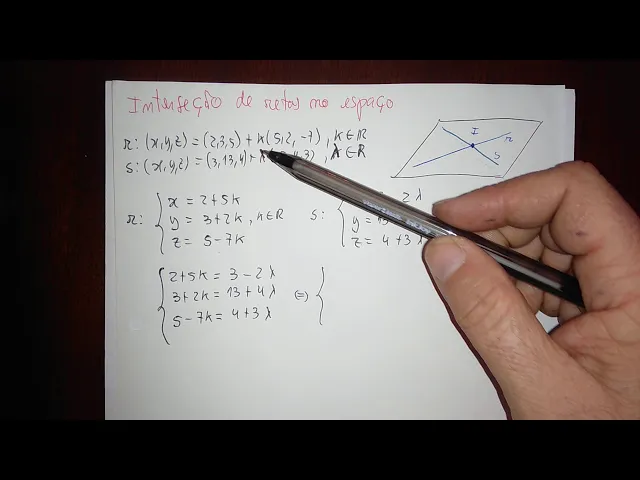 Interseção de retas no espaço
r: (x,y,z) = (2,3,5) + k(5,2,-7), k∈R
s: (x,y,z) = (3,13,4)+ 4,3), λ∈R
r: { x = 2+5k
y = 3+2k, k∈R
z = 5-7k
s: { 2λ
y =
z = 4+3λ
{ 2+5k = 3-2λ
3+2k = 13+4λ <=> {
5-7k = 4+3λ
I
r
s